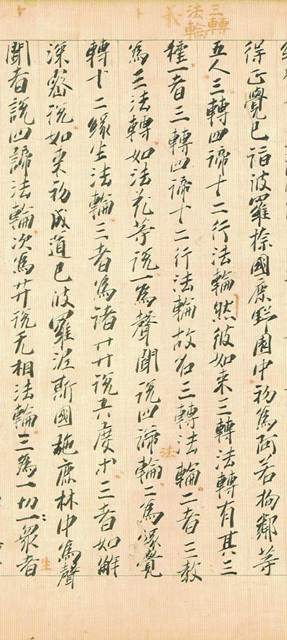 三轉
法輪
義
得正覺已詣波羅捺國鹿野園中初為阿若拘鄰等
五人三轉四諦十二行法輪然彼如來三轉法轉有其三
種一者三轉四諦十二行法輪故名三轉法輪二者三教
法
為三法轉如法花等說一為聲聞說四諦輪二為緣覺
轉十二緣生法輪三者為諸𦬇說六度 三者如解
深密說如來初成道已波羅泥斯國施鹿林中為聲
聞者說四諦法輪次為𦬇說无相法輪三為一切眾者
生